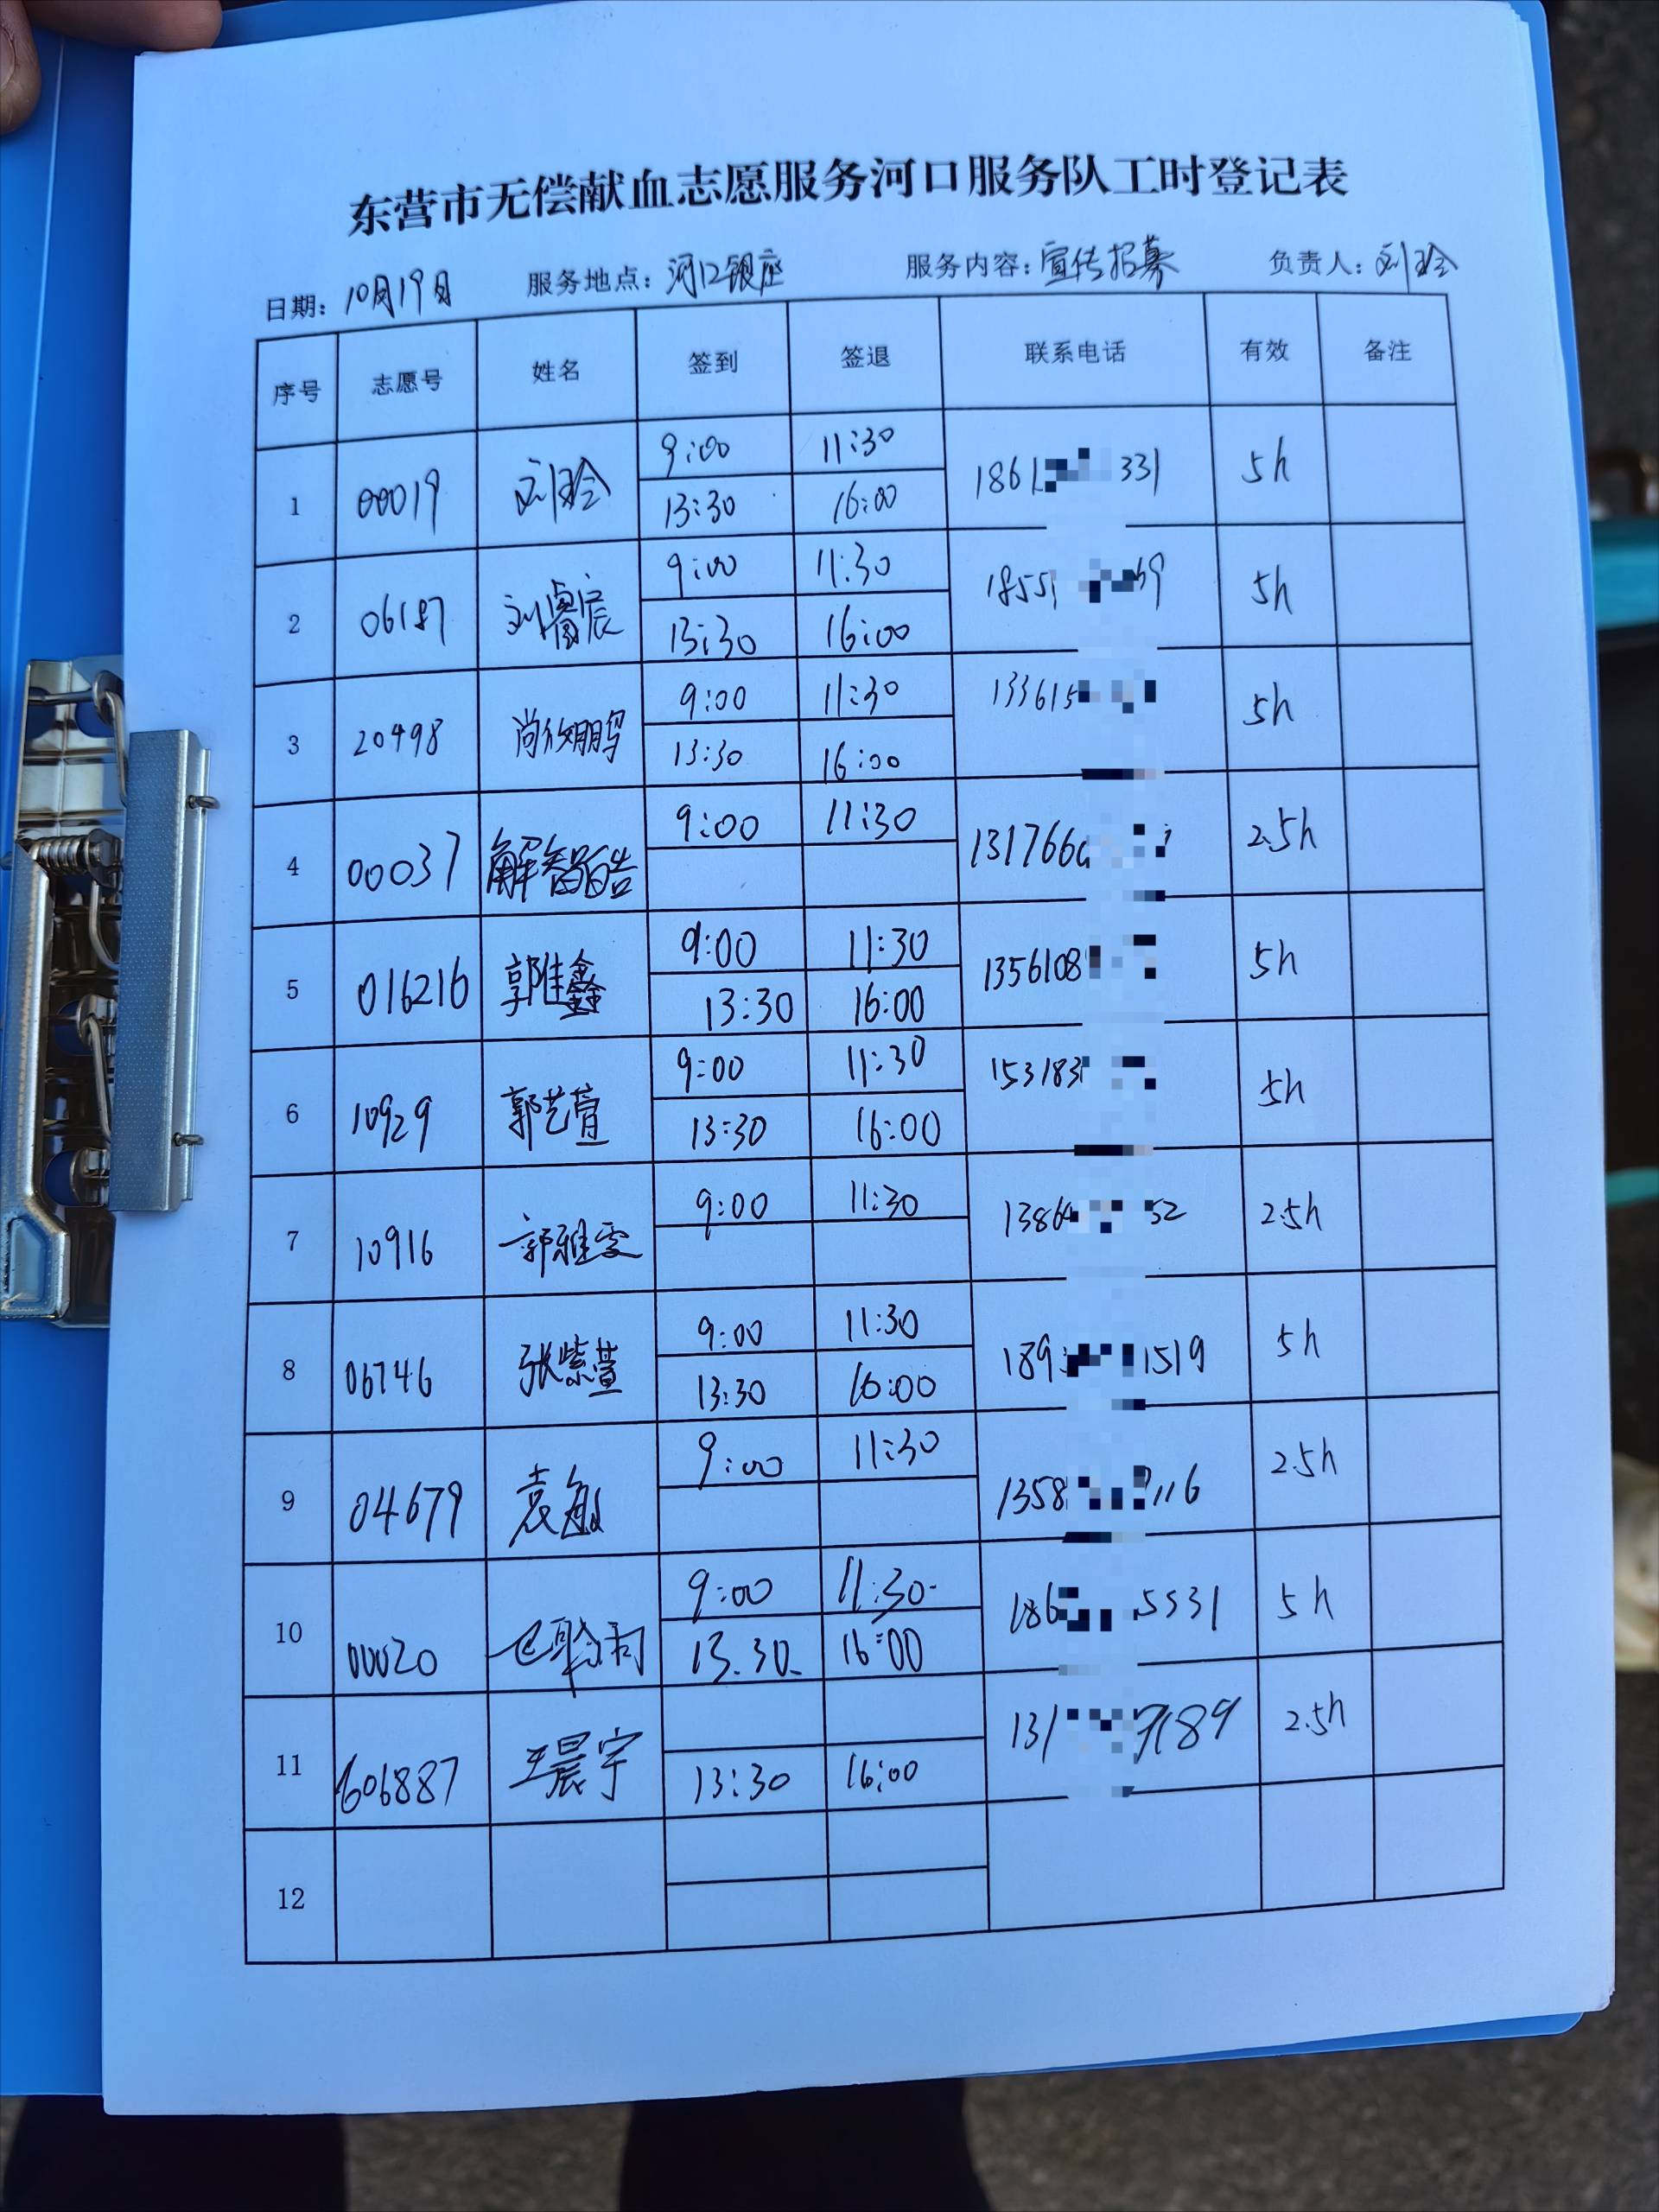 东营市无偿献血志愿服务河口服务队工时登记表
日期: 10月19日 服务地点: 河口银座 服务内容: 宣传招募 负责人: 刘玲
序号 志愿号 姓名 签到 签退 联系电话 有效 备注
9:00 11:30
1 00019 刘玲 1861 331 5h
13:30 16:00
9:00 11:30
2 06187 刘睿宸 1855 69 5h
13:30 16:00
9:00 11:30
3 20498 尚 133615 5h
13:30 16:00
9:00 11:30
4 00037 解智皓 131766 2.5h
9:00 11:30
5 016216 郭佳鑫 1356108 5h
13:30 16:00
9:00 11:30
6 10929 郭艺萱 153183 5h
13:30 16:00
9:00 11:30
7 10916 郭雅雯 1386 52 2.5h
9:00 11:30
8 06746 张紫萱 189 1519 5h
13:30 16:00
9:00 11:30
9 04679 袁 1358 116 2.5h
9:00 11:30
10 00020 186 5531 5h
13.30 16:00
11 606887 王晨宇 131 9189 2.5h
13:30 16:00
12